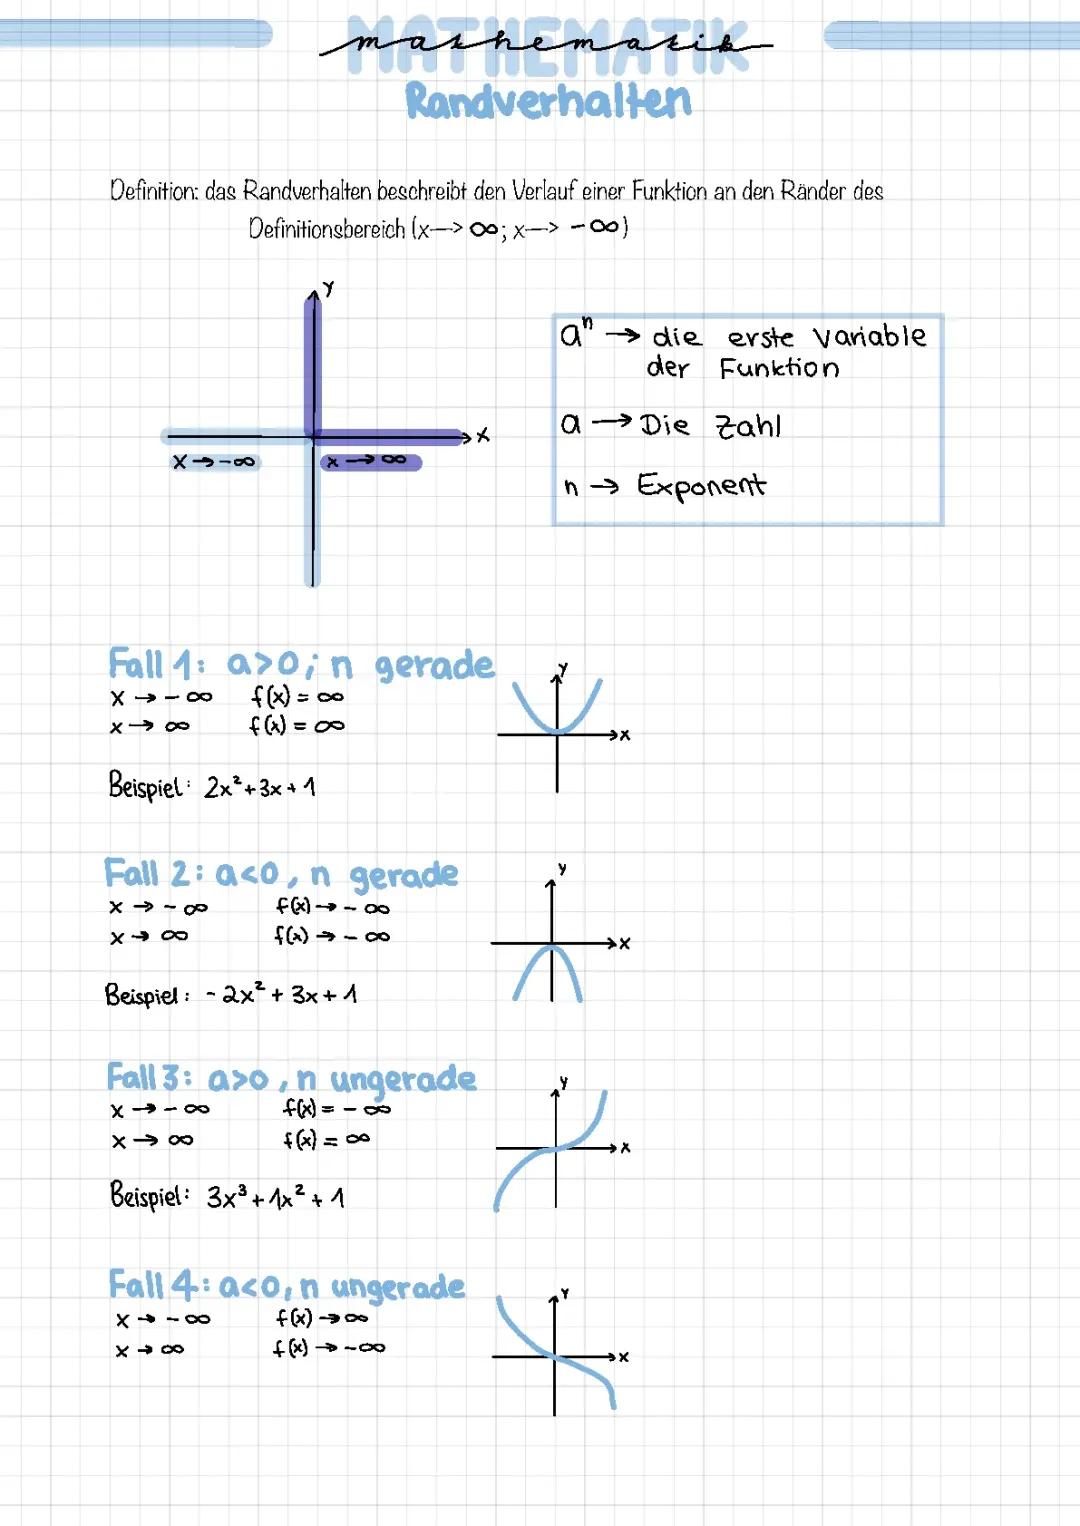 MATHEMATIK
mathematik
Randverhalten
Definition: das Randverhalten beschreibt den Verlauf einer Funktion an den Ränder des
Definitionsbereich (x—> ∞; x—> -∞)
y
x
x→-∞
x→∞
aⁿ → die erste Variable
der Funktion
a → Die Zahl
n → Exponent
Fall 1: a>0; n gerade
x → -∞ f(x) = ∞
x → ∞ f(x) = ∞
Beispiel: 2x²+3x+1
y
x
Fall 2: a<0, n gerade
x → -∞ f(x) → -∞
x → ∞ f(x) → -∞
Beispiel: -2x²+3x+1
y
x
Fall 3: a>0, n ungerade
x → -∞ f(x) = -∞
x → ∞ f(x) = ∞
Beispiel: 3x³+1x²+1
y
x
Fall 4: a<0, n ungerade
x → -∞ f(x) → ∞
x → ∞ f(x) → -∞
y
x